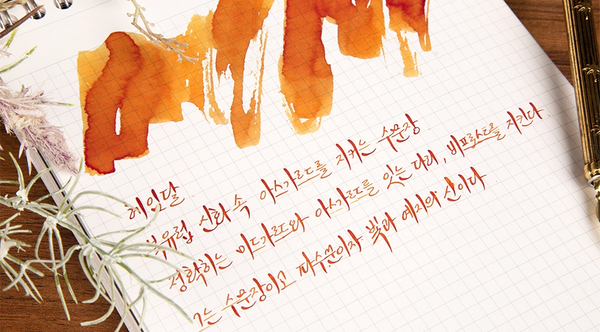 헤임달
북유럽 신화 속 아스가르드를 지키는 수문장
정확히는 미드가르드와 아스가르드를 잇는 다리, 비프로스트를 지킨다
그는 수문장이고 파수꾼이자 빛과 예지의 신이다